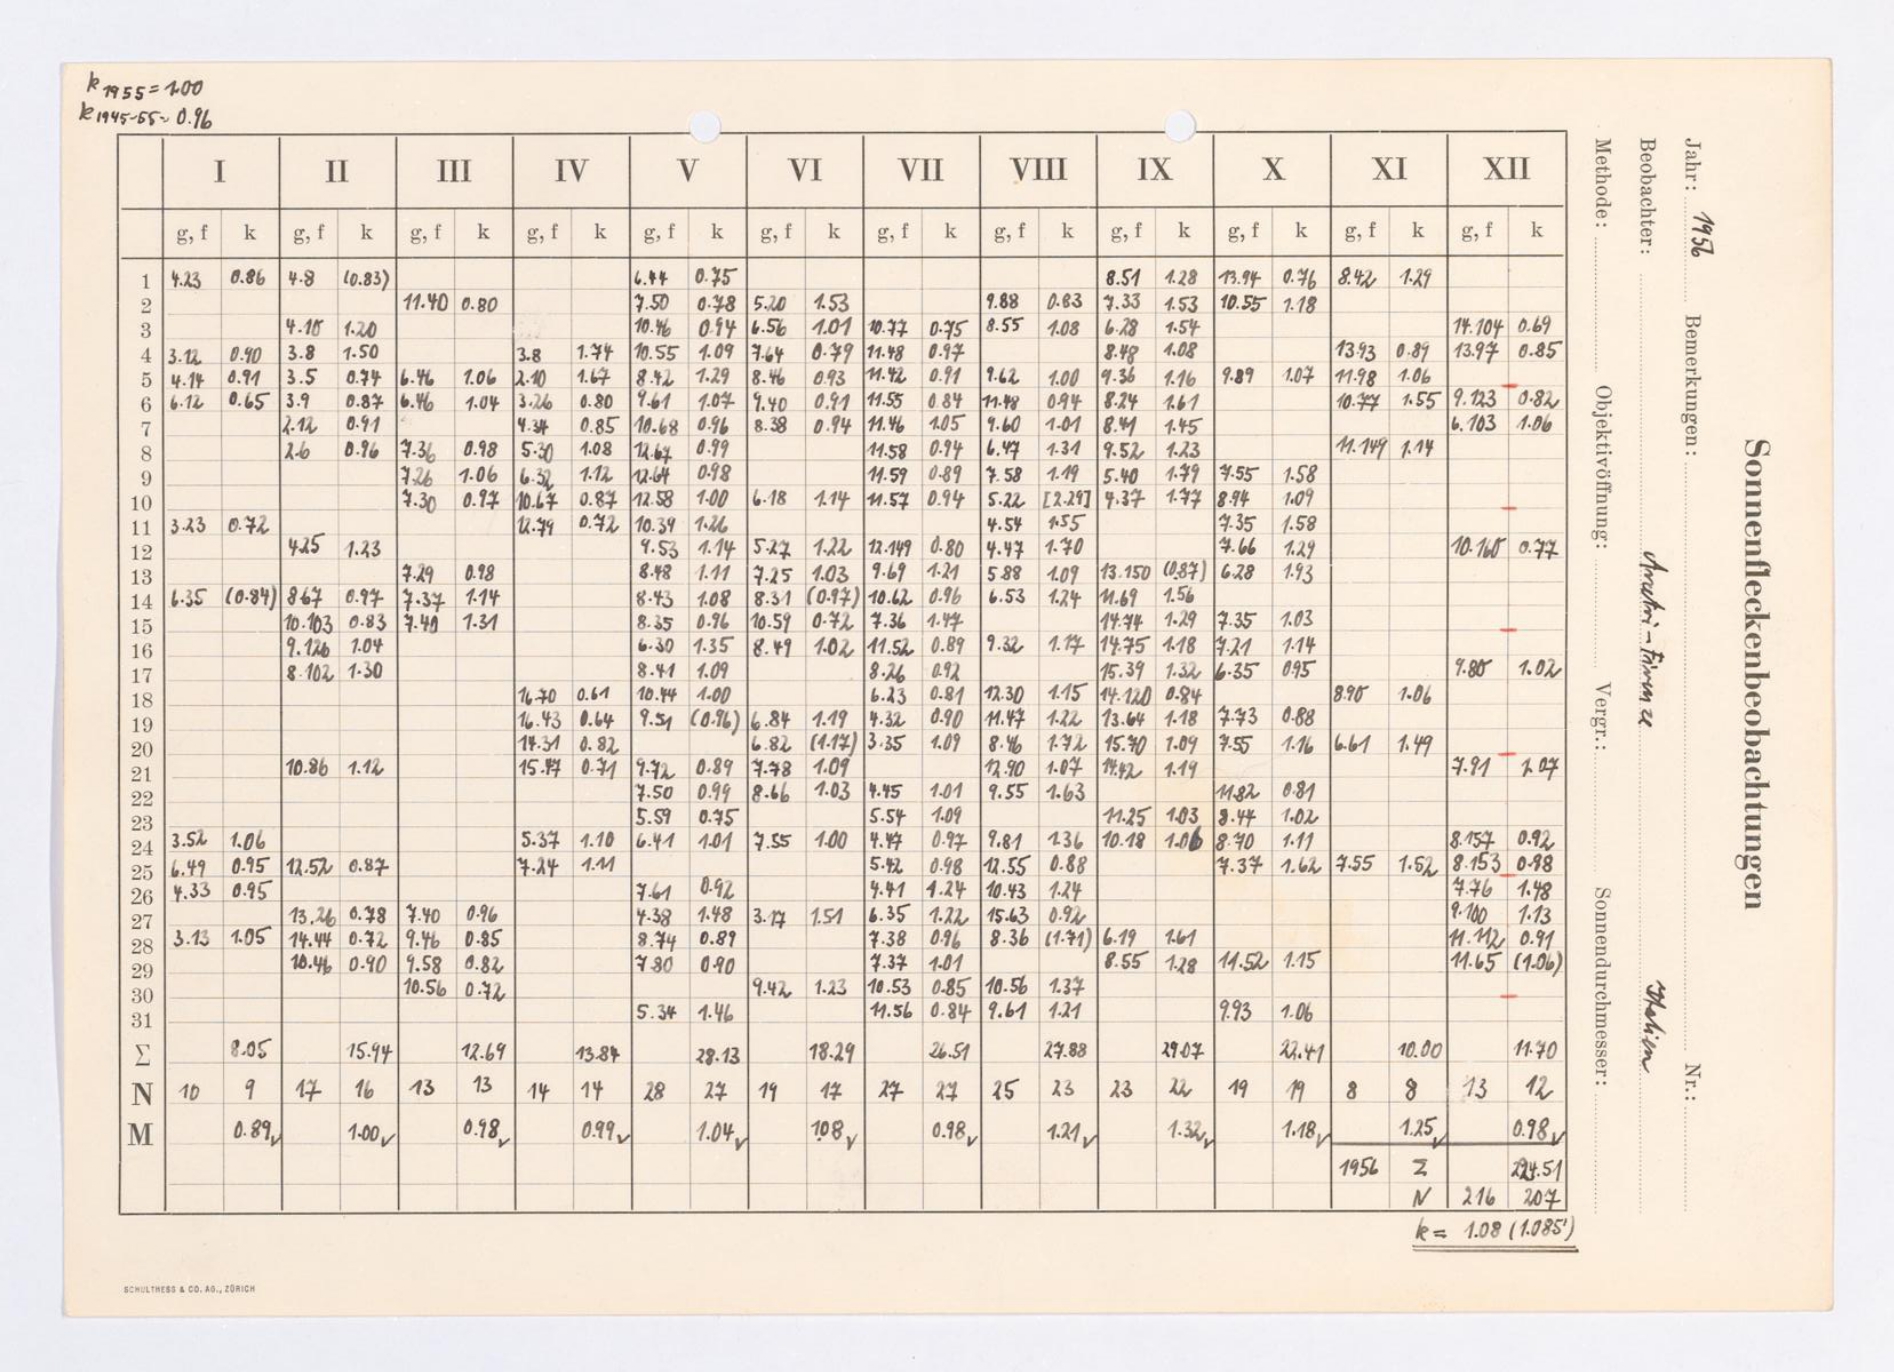 k 1955 = 1.00
k 1945-55 = 0.96
I II III IV V VI VII VIII IX X XI XII
g, f k g, f k g, f k g, f k g, f k g, f k g, f k g, f k g, f k g, f k g, f k g, f k
1 4.23 0.86 4.8 (0.83) 6.44 0.75 8.51 1.28 13.94 0.76 8.42 1.29
2 11.40 0.80 7.50 0.78 5.20 1.53 9.88 0.83 7.33 1.53 10.55 1.18
3 4.10 1.20 10.46 0.94 6.56 1.01 10.77 0.75 8.55 1.08 6.28 1.54 14.104 0.69
4 3.12 0.90 3.8 1.50 3.8 1.74 10.55 1.09 7.64 0.79 11.48 0.97 8.48 1.08 13.93 0.89 13.97 0.85
5 4.14 0.91 3.5 0.74 6.46 1.06 2.10 1.67 8.42 1.29 8.46 0.93 11.42 0.91 9.62 1.00 9.36 1.16 9.89 1.07 11.98 1.06
6 6.12 0.65 3.9 0.87 6.46 1.04 3.26 0.80 9.61 1.07 9.40 0.91 11.55 0.84 11.48 0.94 8.24 1.61 10.77 1.55 9.123 0.82
7 2.12 0.91 4.34 0.85 10.68 0.96 8.38 0.94 11.46 1.05 9.60 1.01 8.41 1.45 6.103 1.06
8 2.6 0.96 7.36 0.98 5.30 1.08 12.67 0.99 11.58 0.94 6.47 1.31 9.52 1.23 11.149 1.14
9 7.26 1.06 6.32 1.12 12.64 0.98 11.59 0.89 7.58 1.19 5.40 1.79 7.55 1.58
10 7.30 0.97 10.67 0.87 12.58 1.00 6.18 1.14 11.57 0.94 5.22 [2.29] 4.37 1.77 8.94 1.09
11 3.23 0.72 12.79 0.72 10.39 1.26 4.54 1.55 7.35 1.58
12 4.25 1.23 9.53 1.14 5.27 1.22 12.149 0.80 4.47 1.70 7.66 1.29 10.160 0.77
13 7.29 0.98 8.48 1.11 7.25 1.03 9.69 1.21 5.88 1.09 13.150 (0.87) 6.28 1.93
14 6.35 (0.84) 8.67 0.97 7.37 1.14 8.43 1.08 8.31 (0.97) 10.62 0.96 6.53 1.24 11.69 1.56
15 10.103 0.83 7.40 1.31 8.35 0.96 10.59 0.72 7.36 1.47 14.74 1.29 7.35 1.03
16 9.126 1.04 6.30 1.35 8.49 1.02 11.52 0.89 9.32 1.17 14.75 1.18 7.21 1.14
17 8.102 1.30 8.41 1.09 8.26 0.92 15.39 1.32 6.35 0.95 9.80 1.02
18 16.70 0.61 10.44 1.00 6.23 0.81 12.30 1.15 14.120 0.84 8.90 1.06
19 16.43 0.64 9.51 (0.96) 6.84 1.19 4.32 0.90 11.47 1.22 13.64 1.18 7.73 0.88
20 14.31 0.82 6.82 (1.17) 3.35 1.09 8.46 1.72 15.70 1.09 7.55 1.16 6.61 1.49
21 10.86 1.12 15.47 0.71 9.72 0.89 7.78 1.09 12.90 1.07 14.42 1.19 7.91 1.07
22 7.50 0.99 8.66 1.03 4.45 1.01 9.55 1.63 11.82 0.81
23 5.59 0.75 5.54 1.09 11.25 1.03 8.44 1.02
24 3.52 1.06 5.37 1.10 6.41 1.01 7.55 1.00 4.47 0.97 9.81 1.36 10.18 1.06 8.70 1.11 8.157 0.92
25 6.49 0.95 12.52 0.87 7.24 1.11 5.42 0.98 12.55 0.88 7.37 1.62 7.55 1.52 8.153 0.98
26 4.33 0.95 7.61 0.92 4.41 1.24 10.43 1.24 7.76 1.48
27 13.26 0.78 7.40 0.96 4.38 1.48 3.17 1.51 6.35 1.22 15.63 0.92 9.100 1.13
28 3.13 1.05 14.44 0.72 9.46 0.85 8.74 0.89 7.38 0.96 8.36 (1.71) 6.19 1.61 11.112 0.91
29 10.46 0.90 9.58 0.82 7.80 0.90 7.37 1.01 8.55 1.28 11.52 1.15 11.65 (1.06)
30 10.56 0.72 9.42 1.23 10.53 0.85 10.56 1.37
31 5.34 1.46 11.56 0.84 9.61 1.21 9.93 1.06
Σ 8.05 15.94 12.69 13.84 28.13 18.29 26.51 27.88 29.07 22.41 10.00 11.70
N 10 9 17 16 13 13 14 14 28 27 19 17 27 27 25 23 23 22 19 19 8 8 13 12
M 0.89✓ 1.00✓ 0.98✓ 0.99✓ 1.04✓ 1.08✓ 0.98✓ 1.21✓ 1.32✓ 1.18✓ 1.25✓ 0.98✓
1956 Σ 224.51
N 216 207
k = 1.08 (1.085')
SCHULTHESS & CO. AG., ZÜRICH
Sonnenfleckenbeobachtungen
Jahr: 1956 Bemerkungen: Nr.:
Beobachter: Arcetri-Firenze Italien
Methode: Objektivöffnung: Vergr.: Sonnendurchmesser: